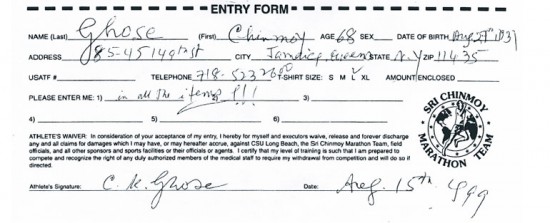 ENTRY FORM
NAME (Last) Ghose (First) Chinmoy AGE 68 SEX DATE OF BIRTH Aug. 27th 1931
ADDRESS 85-45 149th st CITY Jamaica, Queens STATE N.Y ZIP 11435
USATF # TELEPHONE 718-523 2600 T-SHIRT SIZE: S M L XL AMOUNT ENCLOSED
PLEASE ENTER ME: 1) in all the items!!! 3)
4) 5) 6)
ATHLETE'S WAIVER: In consideration of your acceptance of my entry, I hereby for myself and executors waive, release and forever discharge
any and all claims for damages which I may have, or may hereafter accrue, against CSU Long Beach, the Sri Chinmoy Marathon Team, field
officials, and all other sponsors and facilities or their officials or agents. I certify that my level of training is such that I am prepared to
compete and recognize the right of any duly authorized members of the medical staff to require my withdrawal from competition and will do so if
directed.
Athlete's Signature: C. K. Ghose Date: Aug. 15th, 499
SRI CHINMOY
MARATHON TEAM